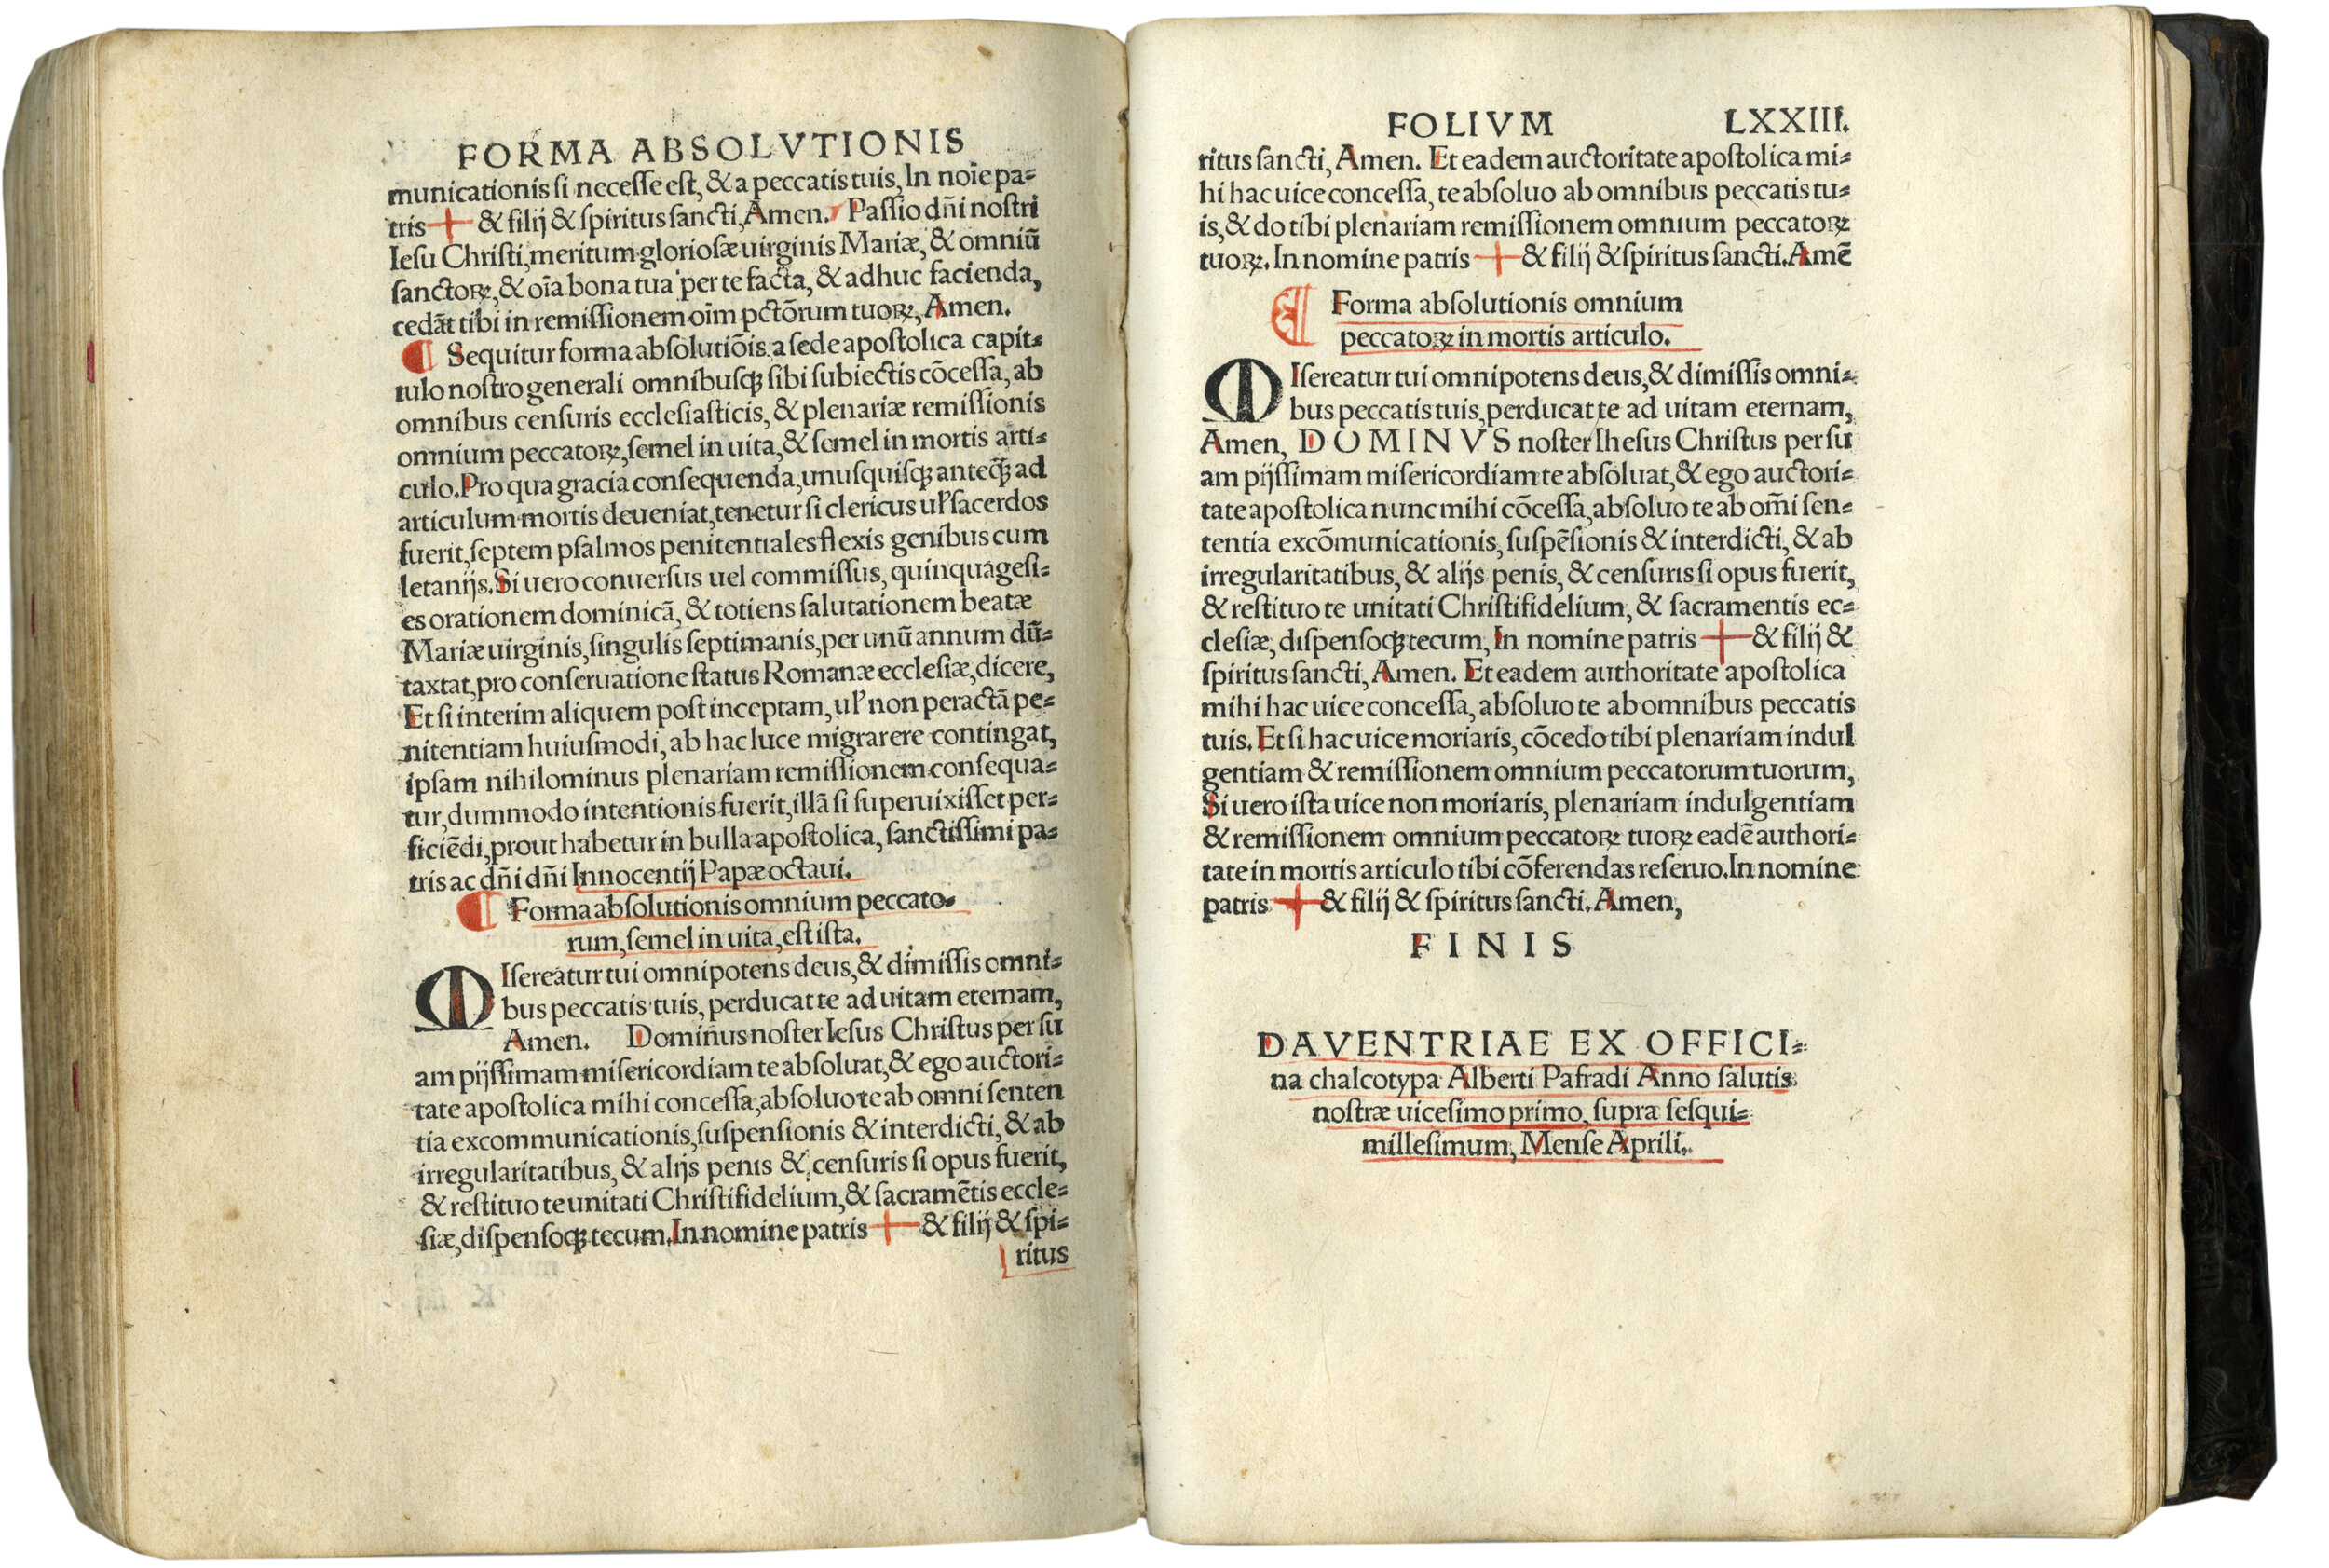 FORMA ABSOLVTIONIS
municationis ſi neceſſe est, & a peccatis tuis, In noīe pa⸗
tris + & filij & ſpiritus ſancti, Amen. Paſſio dn̄i noſtri
Ieſu Chriſti, meritum glorioſæ uirginis Mariæ, & omniū
ſanctoꝝ, & oīa bona tua per te facta, & adhuc facienda,
cedāt tibi in remiſſionem oīm pctōrum tuoꝝ, Amen.
¶ Sequitur forma abſolutiōis a ſede apoſtolica capit⸗
tulo noſtro generali omnibuſqꝫ ſibi ſubiectis cōceſſa, ab
omnibus cenſuris eccleſiaſticis, & plenariæ remiſſionis
omnium peccatoꝝ, ſemel in uita, & ſemel in mortis arti⸗
culo. Pro qua gracia conſequenda, unuſquiſqꝫ anteq̄ꝫ ad
articulum mortis deueniat, tenetur ſi clericus uꝉ ſacerdos
fuerit, ſeptem pſalmos penitentiales flexis genibus cum
letanijs. Si uero conuerſus uel commiſſus, quinquageſi⸗
es orationem dominicā, & totiens ſalutationem beatæ
Mariæ uirginis, ſingulis ſeptimanis, per unū annum dū⸗
taxtat, pro conſeruatione ſtatus Romanæ eccleſiæ, dicere,
Et ſi interim aliquem poſt inceptam, uꝉ non peractā pe⸗
nitentiam huiuſmodi, ab hac luce migrarere contingat,
ipſam nihilominus plenariam remiſſionem conſequa⸗
tur, dummodo intentionis fuerit, illā ſi ſuperuixiſſet per⸗
ficiēdi, prout habetur in bulla apoſtolica, ſanctiſſimi pa⸗
tris ac dn̄i dn̄i Innocentij Papæ octaui.
¶ Forma abſolutionis omnium peccato⸗
rum, ſemel in uita, eſt iſta.
MIſereatur tui omnipotens deus, & dimiſſis omni⸗
bus peccatis tuis, perducat te ad uitam eternam,
Amen. Dominus noſter Ieſus Chriſtus per ſu
am pijſſimam miſericordiam te abſoluat, & ego auctori⸗
tate apoſtolica mihi conceſſa, abſoluo te ab omni ſenten
tia excommunicationis, ſuſpenſionis & interdicti, & ab
irregularitatibus, & alijs penis & cenſuris ſi opus fuerit,
& reſtituo te unitati Chriſtifidelium, & ſacramētis eccle⸗
ſiæ, diſpenſoqꝫ tecum, In nomine patris + & filij & ſpi⸗
ritus
FOLIVM LXXIII.
ritus ſancti, Amen. Et eadem auctoritate apoſtolica mi⸗
hi hac uice conceſſa, te abſoluo ab omnibus peccatis tu⸗
is, & do tibi plenariam remiſſionem omnium peccatoꝝ
tuoꝝ. In nomine patris + & filij & ſpiritus ſancti. Amē
¶ Forma abſolutionis omnium
peccatoꝝ in mortis articulo.
MIſereatur tui omnipotens deus, & dimiſſis omni⸗
bus peccatis tuis, perducat te ad uitam eternam,
Amen, DOMINVS noſter Iheſus Chriſtus per ſu
am pijſſimam miſericordiam te abſoluat, & ego auctori⸗
tate apoſtolica nunc mihi cōceſſa, abſoluo te ab om̄i ſen⸗
tentia excōmunicationis, ſuſpēſionis & interdicti, & ab
irregularitatibus, & alijs penis, & cenſuris ſi opus fuerit,
& reſtituo te unitati Chriſtifidelium, & ſacramentis ec⸗
cleſiæ, diſpenſoqꝫ tecum, In nomine patris + & filij &
ſpiritus ſancti, Amen. Et eadem authoritate apoſtolica
mihi hac uice conceſſa, abſoluo te ab omnibus peccatis
tuis. Et ſi hac uice moriaris, cōcedo tibi plenariam indul
gentiam & remiſſionem omnium peccatorum tuorum,
Si uero iſta uice non moriaris, plenariam indulgentiam
& remiſſionem omnium peccatoꝝ tuoꝝ eadē authori⸗
tate in mortis articulo tibi cōferendas reſeruo. In nomine
patris + & filij & ſpiritus ſancti. Amen,
FINIS
DAVENTRIAE EX OFFICI⸗
na chalcotypa Alberti Pafradi Anno ſalutis
noſtræ uiceſimo primo, ſupra ſeſqui⸗
milleſimum, Menſe Aprili.